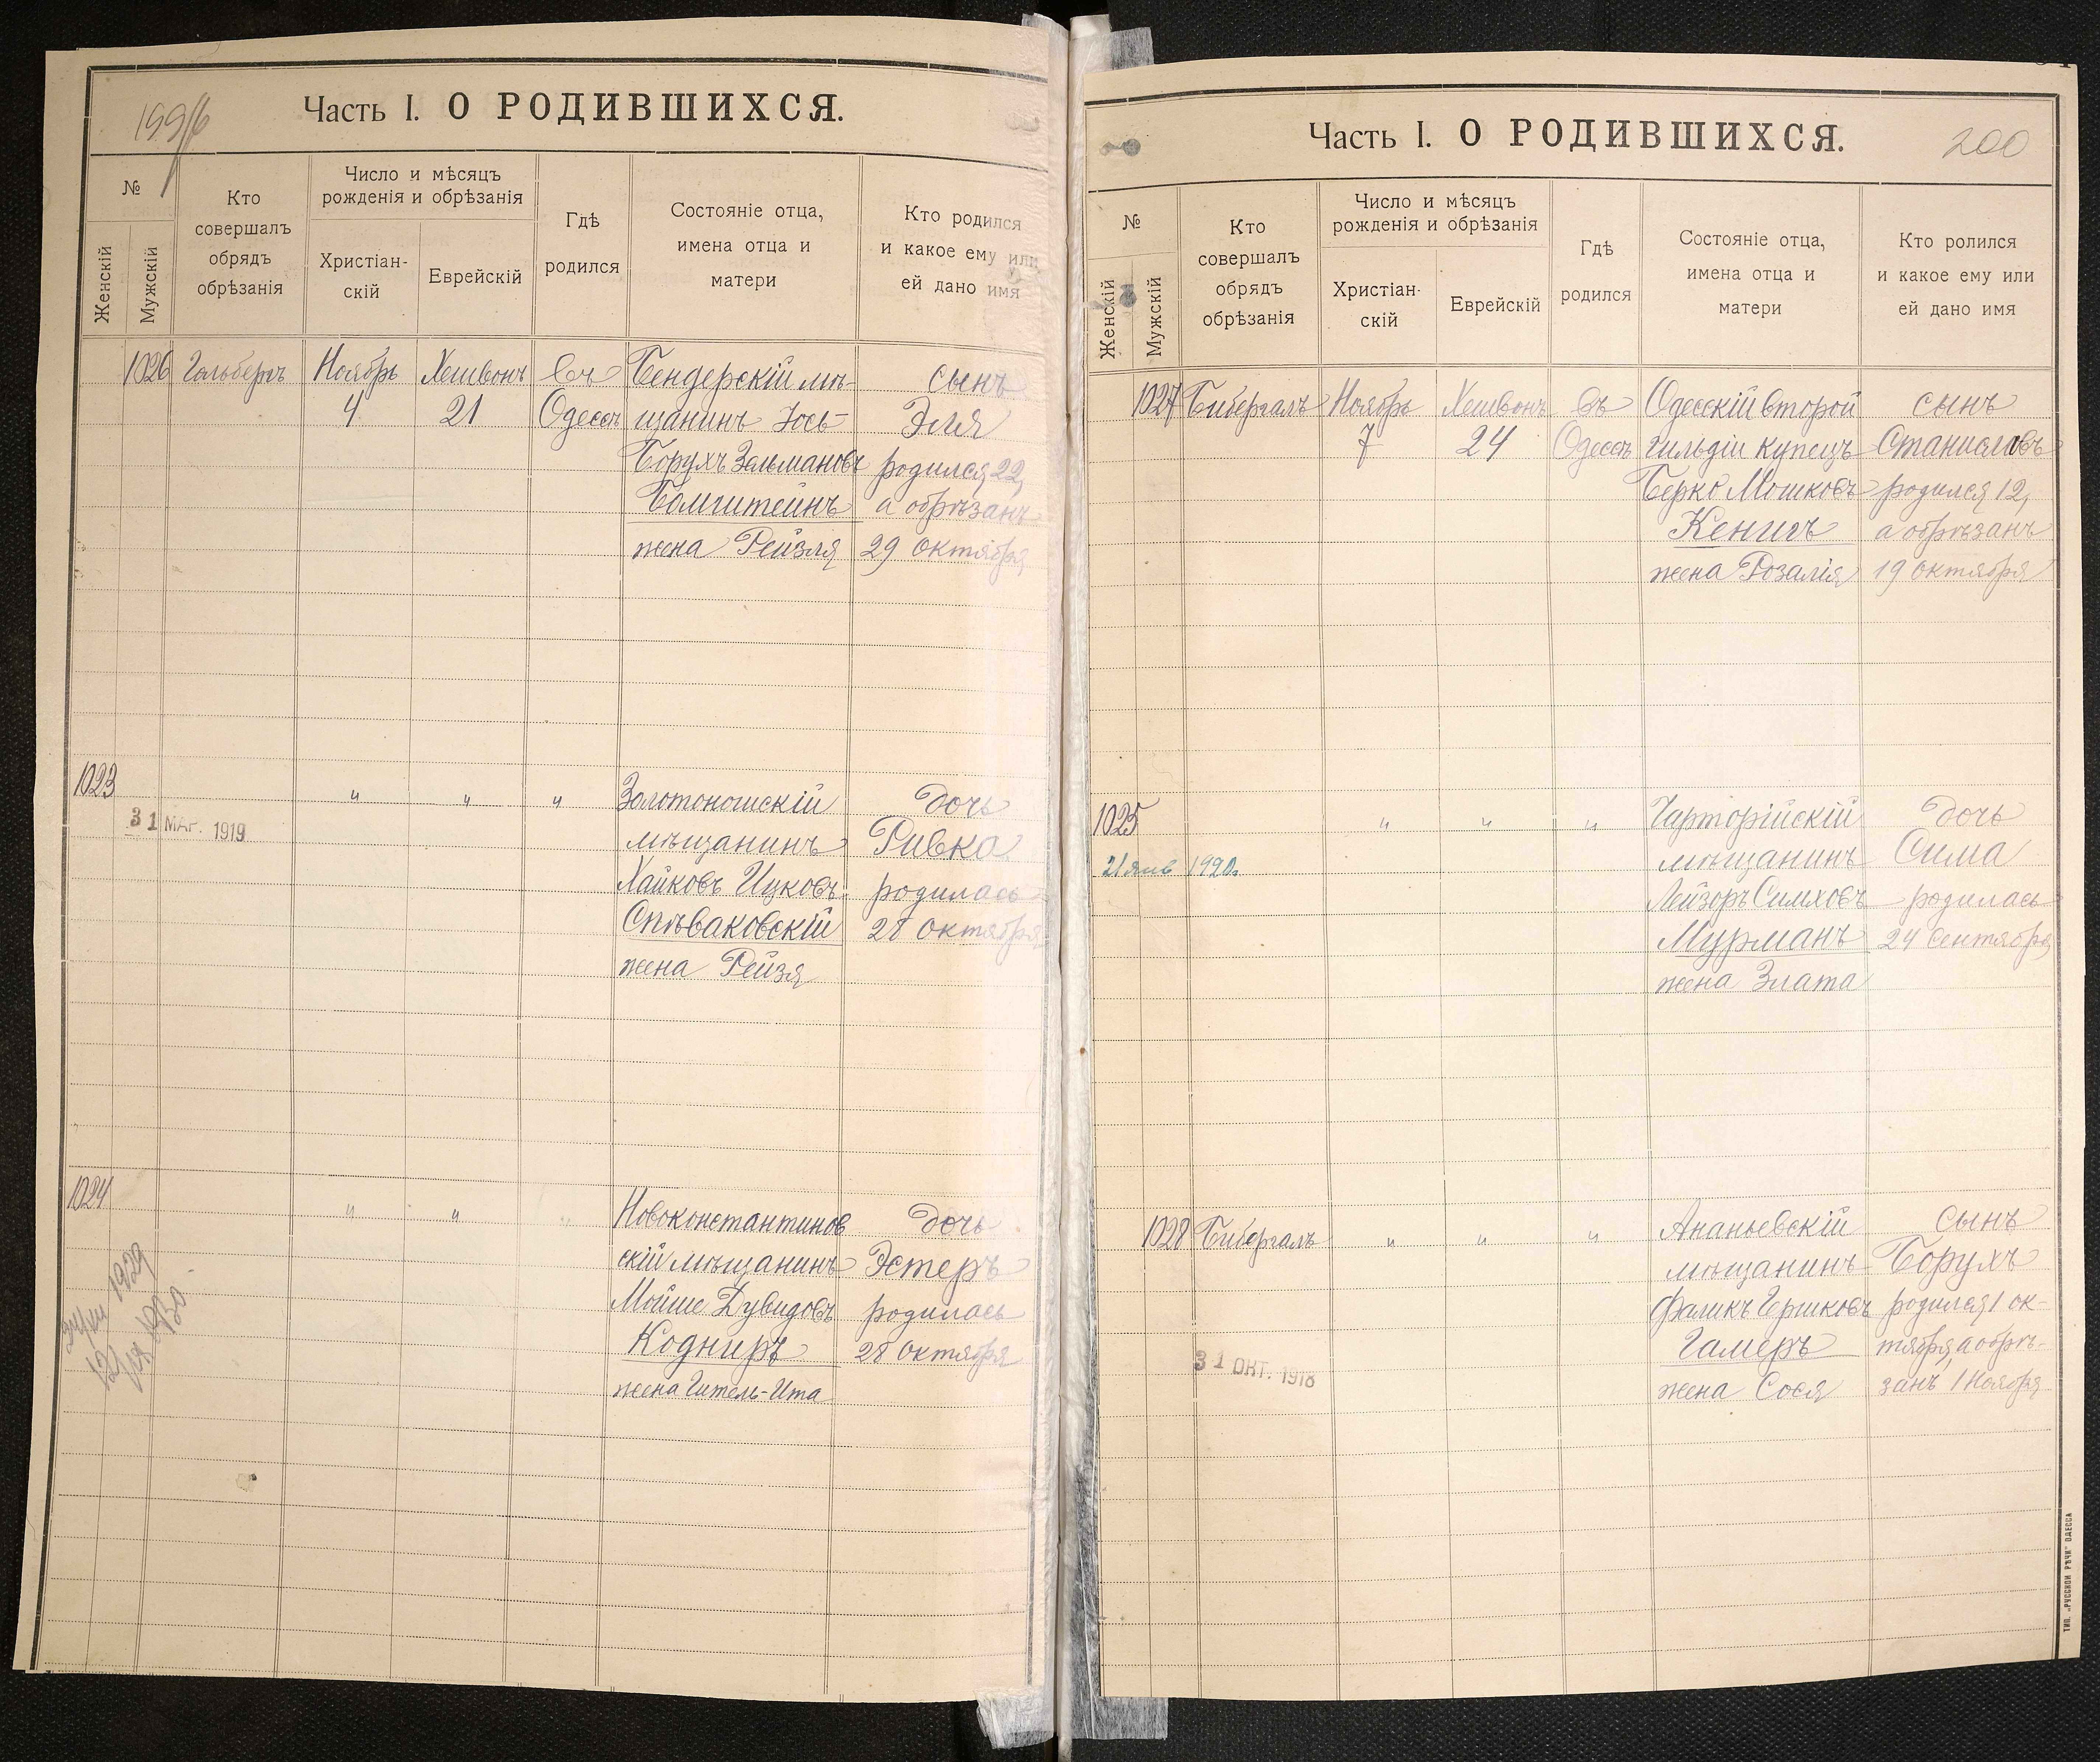 199
Часть I. О РОДИВШИХСЯ.
№
Женскій
Мужскій
Кто
совершалъ
обрядъ
обрѣзанія
Число и мѣсяцъ
рожденія и обрѣзанія
Христіан-
скій
Еврейскій
Гдѣ
родился
Состояніе отца,
имена отца и
матери
Кто родился
и какое ему или
ей дано имя
1026 Гольбергъ Ноябрь Хешвонъ въ Бендерскій мѣ- сынъ
4 21 Одессѣ щанинъ Іось- Эля
Борухъ Зельмановъ родился 22,
а обрѣзанъ
жена Рейзля 29 октября
1023 " " " Золотоношскій дочь
31 МАР. 1919
мѣщанинъ Ривка
Хайковъ Ицковъ родилась
Спѣваковскій 28 октября
жена Рейзя
1024 " " " Новоконстантинов дочь
скій мѣщанинъ Эстеръ
Мойше Дувидовъ родилась
Кодниръ 28 октября
жена Гитель-Ита
Часть I. О РОДИВШИХСЯ.
200
№
Женскій
Мужскій
Кто
совершалъ
обрядъ
обрѣзанія
Число и мѣсяцъ
рожденія и обрѣзанія
Христіан-
скій
Еврейскій
Гдѣ
родился
Состояніе отца,
имена отца и
матери
Кто ролился
и какое ему или
ей дано имя
1027 Бибергалъ Ноябрь Хешвонъ въ Одесскій второй сынъ
7 24 Одессѣ гильдіи купецъ Станиславъ
Берко Мошковъ родился 12,
Кенигъ а обрѣзанъ
жена Розалія 19 октября
1025 " " " Чарторійскій дочь
21 янв 1920.
мѣщанинъ Сима
Лейзоръ Симховъ родилась
Мурманъ 24 сентября
жена Злата
1028 Бибергалъ " " " Ананьевскій сынъ
мѣщанинъ Борухъ
Фаликъ Гершковъ родился 1 ок-
Гамеръ тября, а обрѣ-
31 ОКТ. 1918
жена Сося занъ 1 Ноября
ТИП. „РУССКОЙ РѢЧИ" ОДЕССА